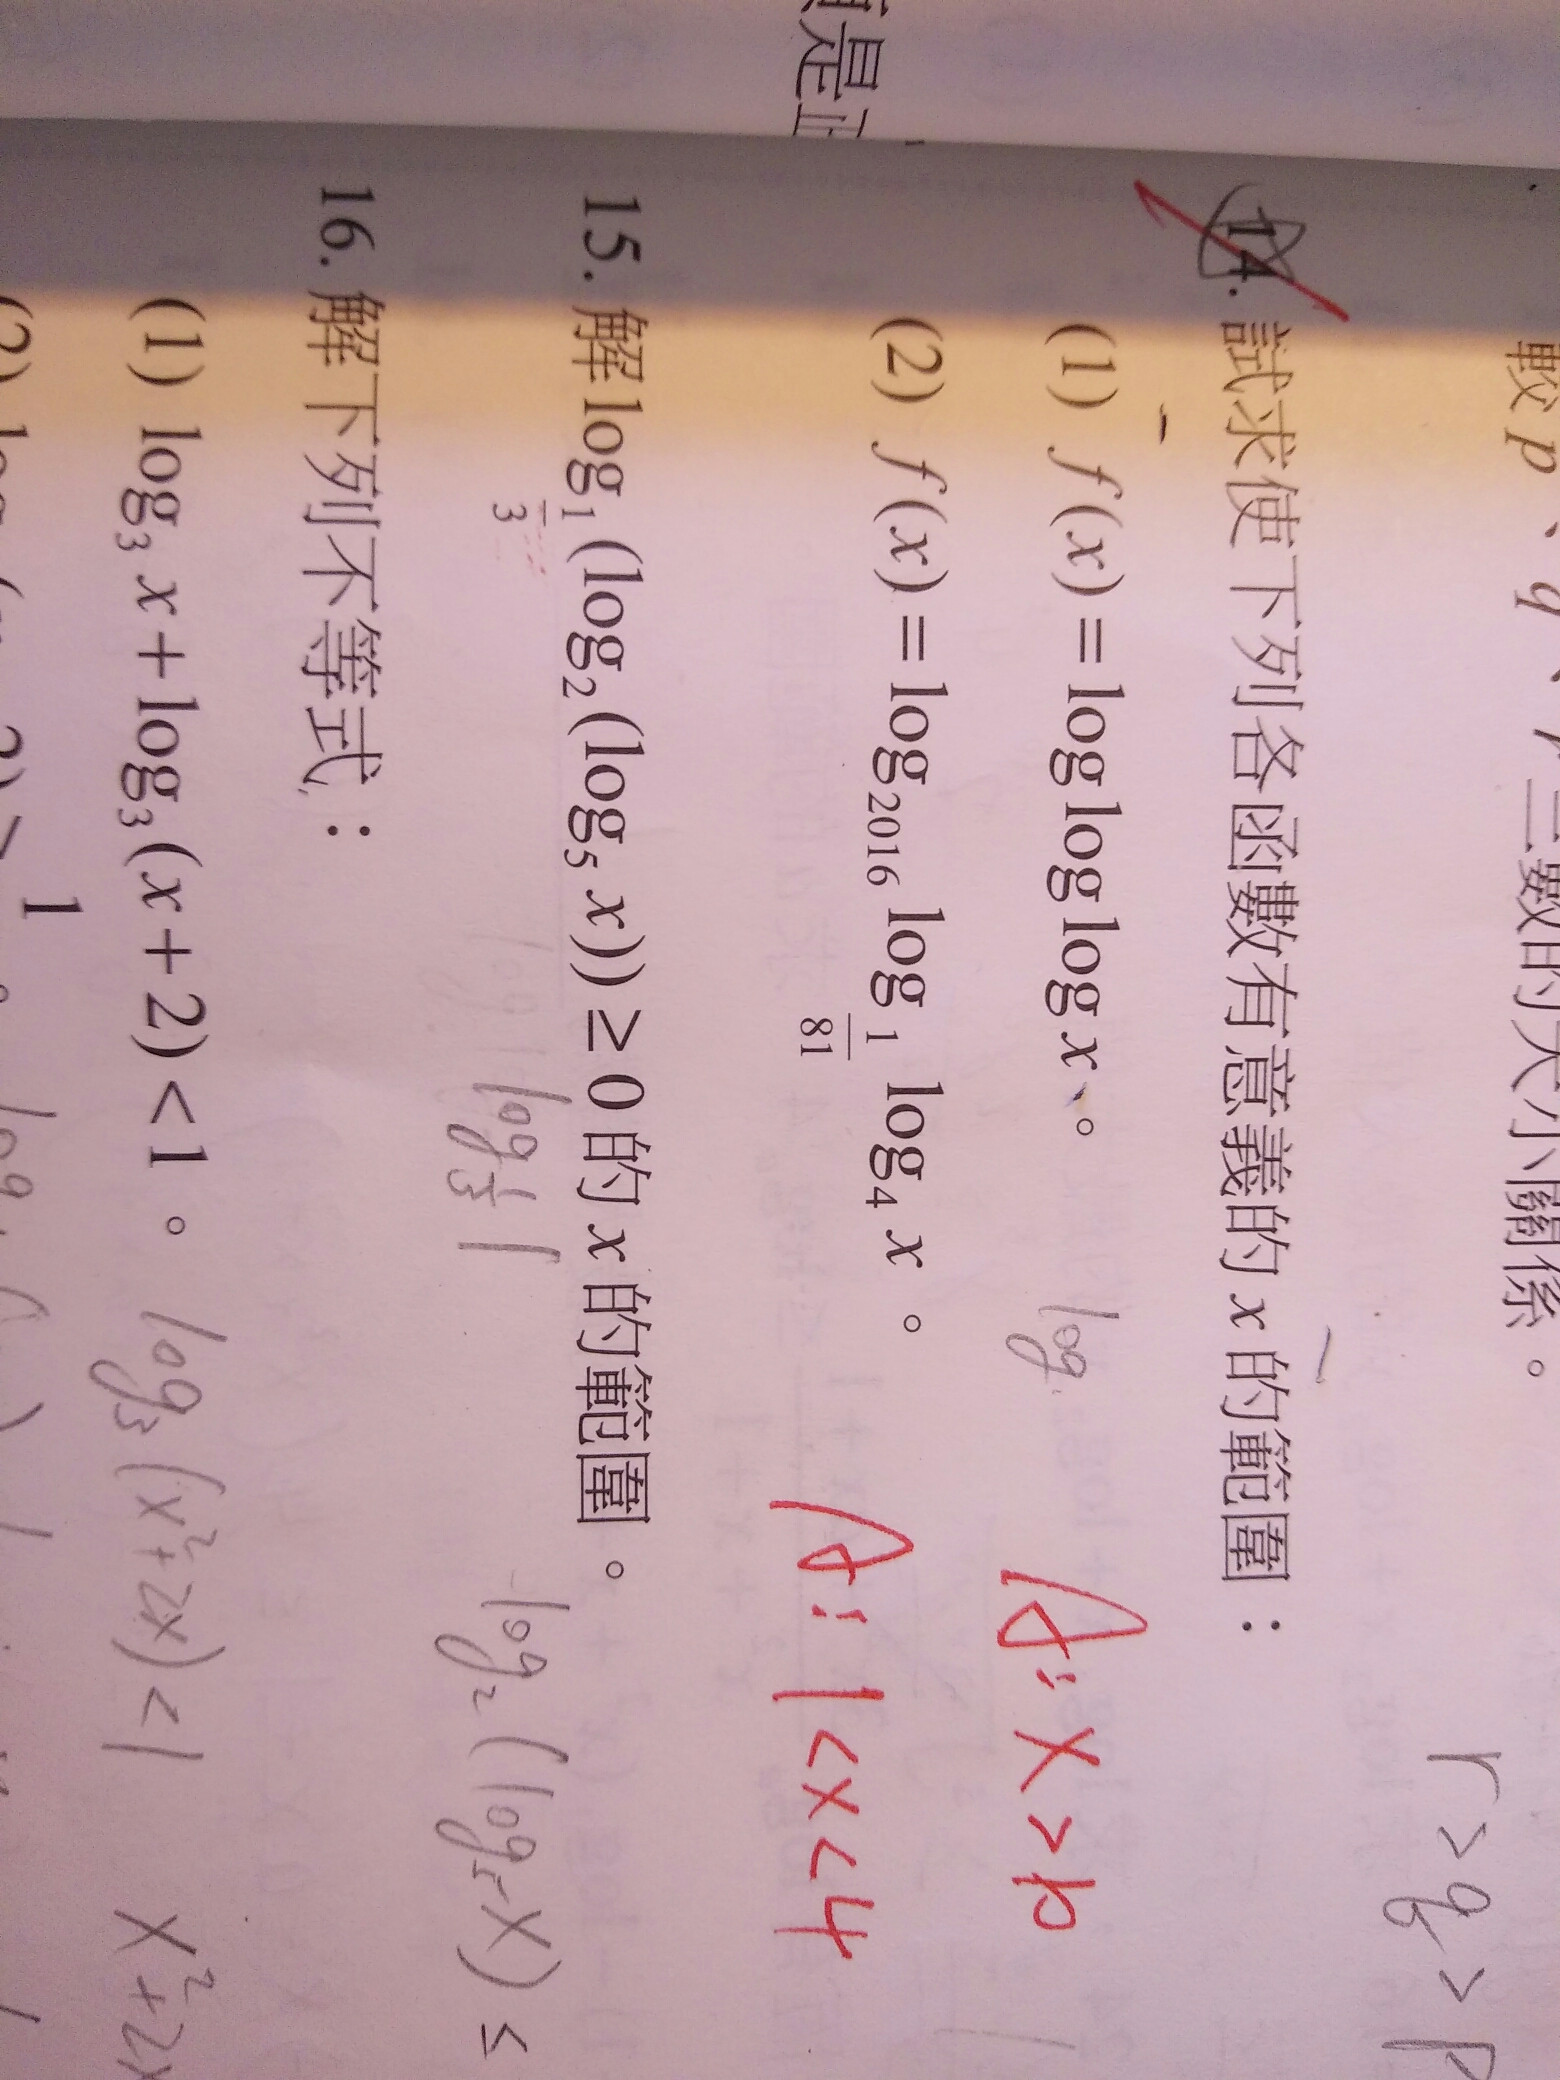 是
較 p、q、r 三數的大小關係。
r>q>p
14. 試求使下列各函數有意義的 x 的範圍：
(1) f(x)=log log log x。 log A: x>10
(2) f(x)=log₂₀₁₆ log_{1/81} log₄ x。 A: 1<x<4
15. 解 log_{1/3}(log₂(log₅ x)) ≥ 0 的 x 的範圍。
log_{1/3} 1 log₂(log₅ x) ≤
16. 解下列不等式：
(1) log₃ x+log₃(x+2)<1。 log₃(x²+2x)<1 x²+2x
(2)